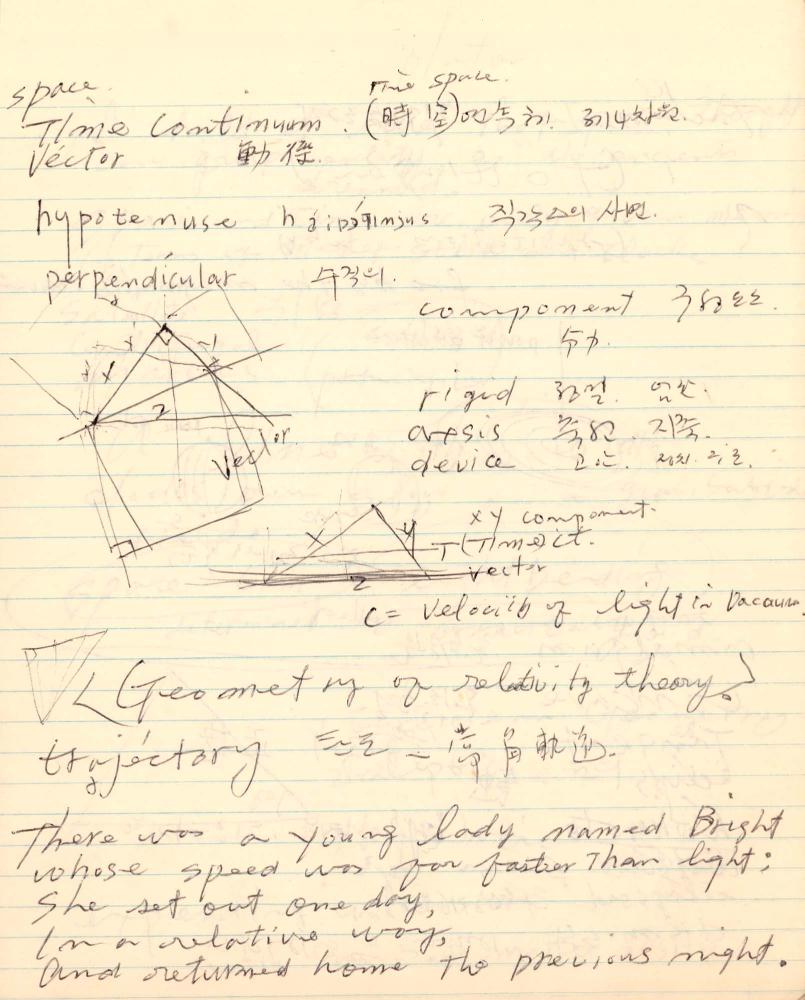 space
Time space.
Time continuum. (時空)연속체. 제4차원.
Vector 動徑.
hypotenuse 직각△의 사변.
perpendicular 수직의.
component 구성요소.
분力.
rigid
axsis
device 고안.
x
x
y
z
Vector.
x y component.
x
y
T(Time)ct.
z
vector
C = Velocity of light in Vacaum.
(Geometry of relativity theory.)
trajéctory
There was a young lady named Bright
whose speed was far faster Than light;
She set out one day,
In a relative way,
And returned home the previous night.